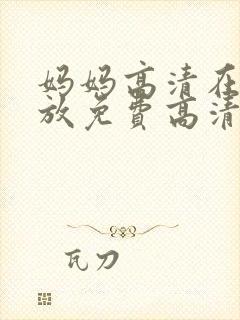 妈妈高清在
放免费高清
瓦刀